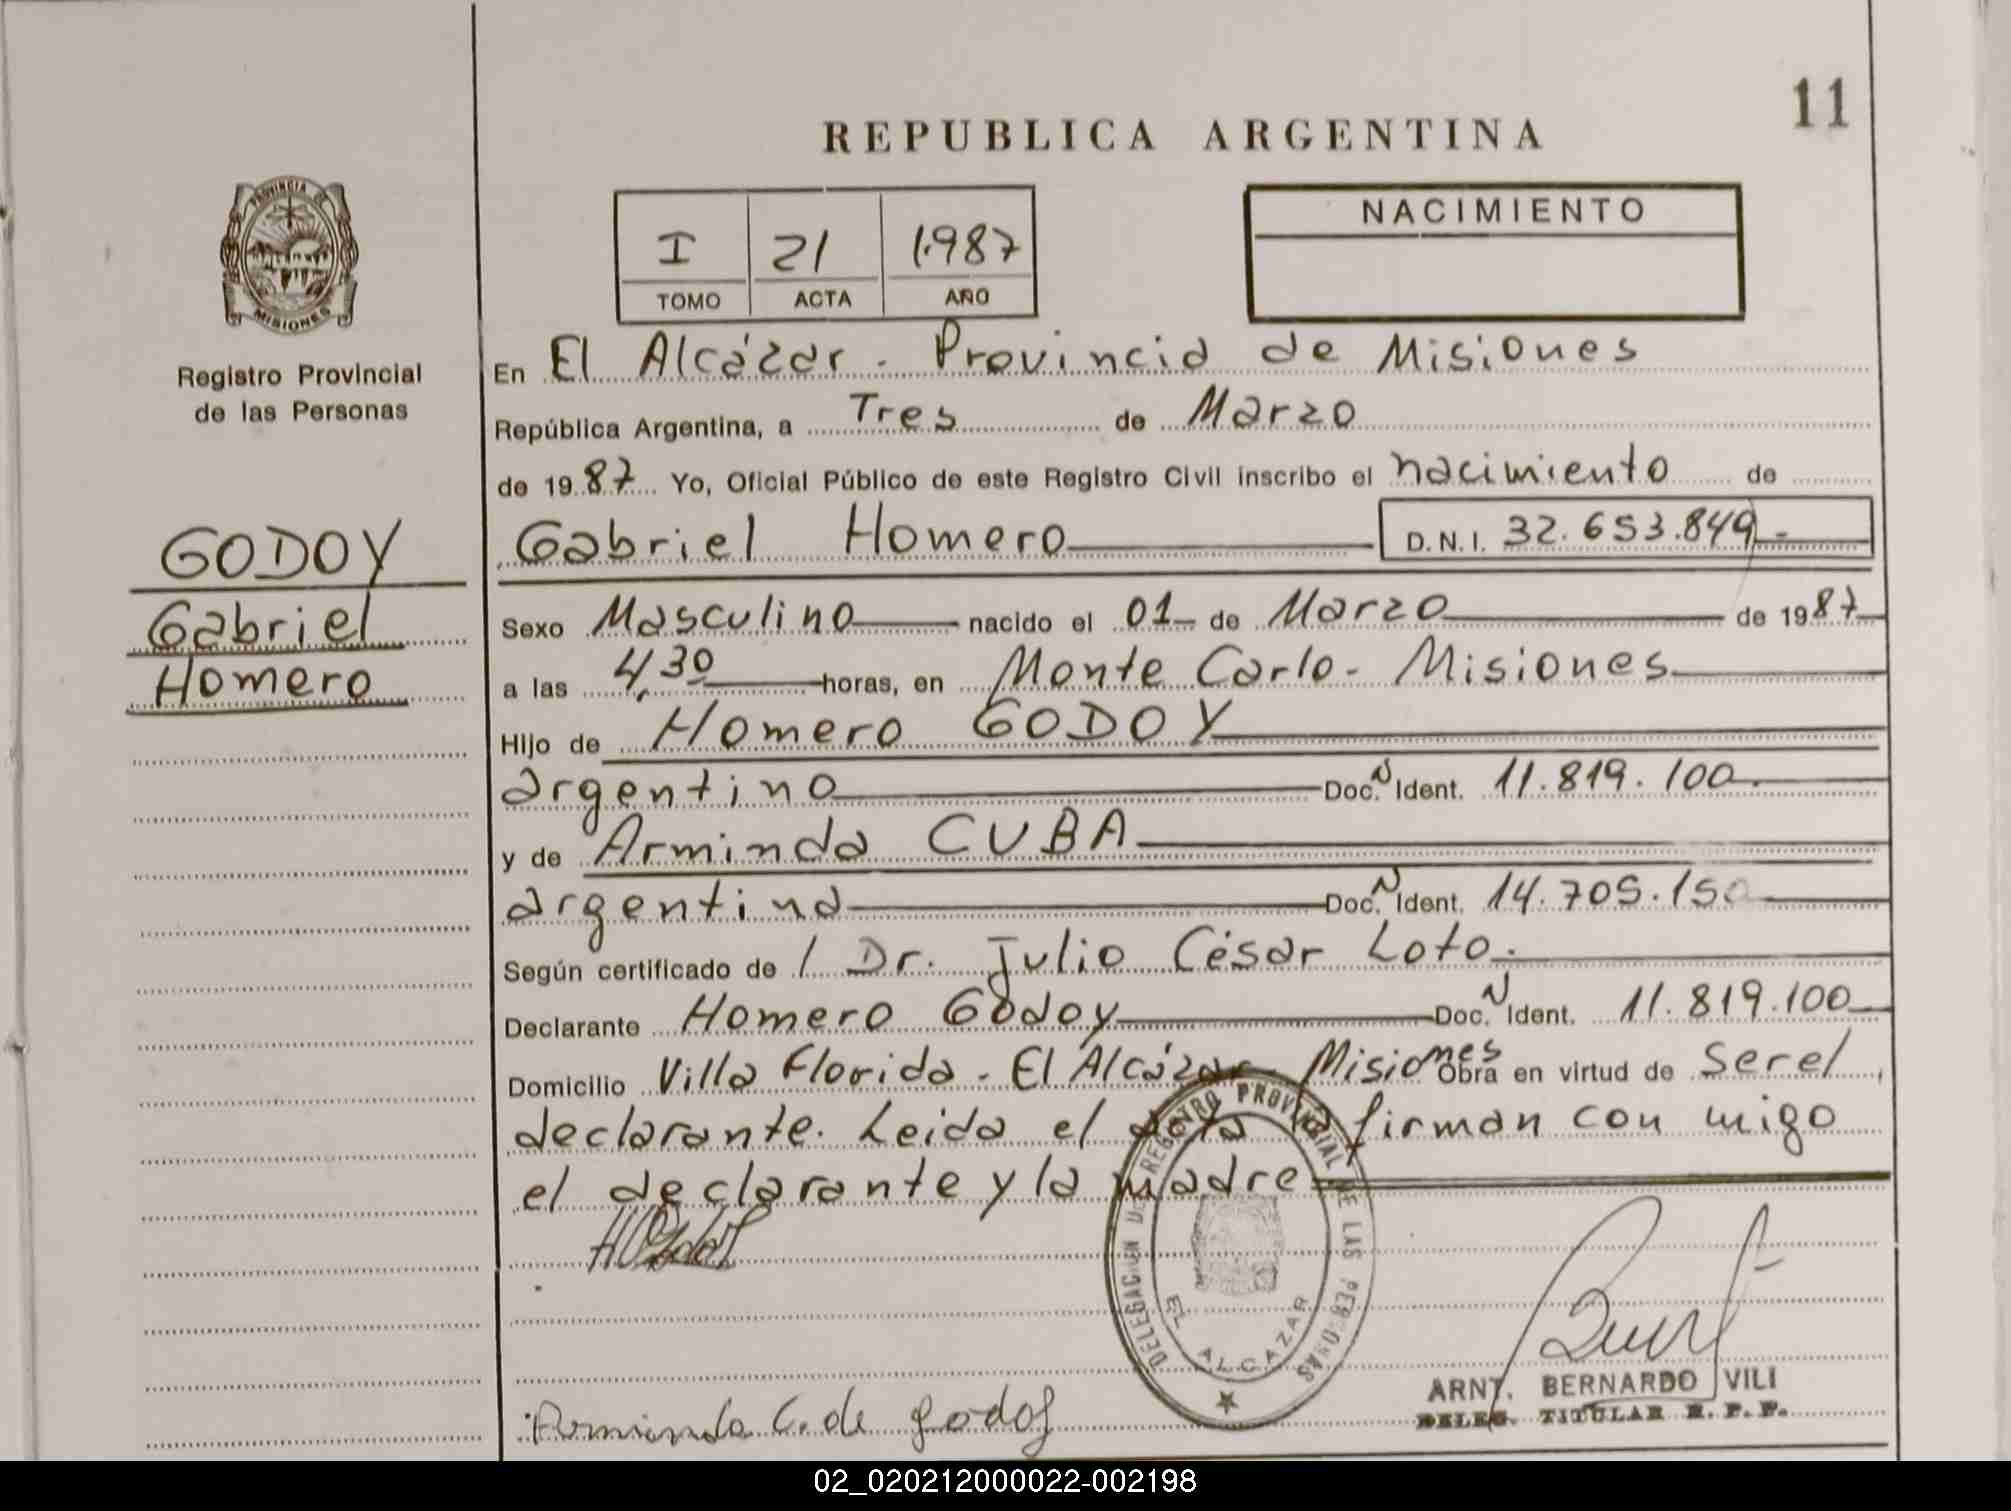 11
REPUBLICA ARGENTINA
PROVINCIA DE
MISIONES
Registro Provincial
de las Personas
I 21 1.987
TOMO ACTA AÑO
NACIMIENTO
En El Alcázar - Provincia de Misiones
República Argentina, a Tres de Marzo
de 1987 Yo, Oficial Público de este Registro Civil inscribo el nacimiento de
Gabriel Homero D.N.I. 32.653.849-
GODOY
Gabriel
Homero
Sexo Masculino nacido el 01 de Marzo de 1987
a las 4,30 horas, en Monte Carlo - Misiones
Hijo de Homero GODOY
argentino Doc. N Ident. 11.819.100.
y de Arminda CUBA
argentina Doc. N Ident. 14.705.150
Según certificado de / Dr. Julio César Loto.
Declarante Homero Godoy Doc. N Ident. 11.819.100
Domicilio Villa Florida - El Alcázar - Misiones Obra en virtud de Ser el
declarante. Leida el acta la firman con migo
el declarante y la madre
DELEGACION DE REGISTRO PROVINCIAL DE LAS PERSONAS
EL ALCAZAR
Arminda C. de Godoy
ARNT. BERNARDO VILI
DELEG. TITULAR R. P. P.
02_020212000022-002198